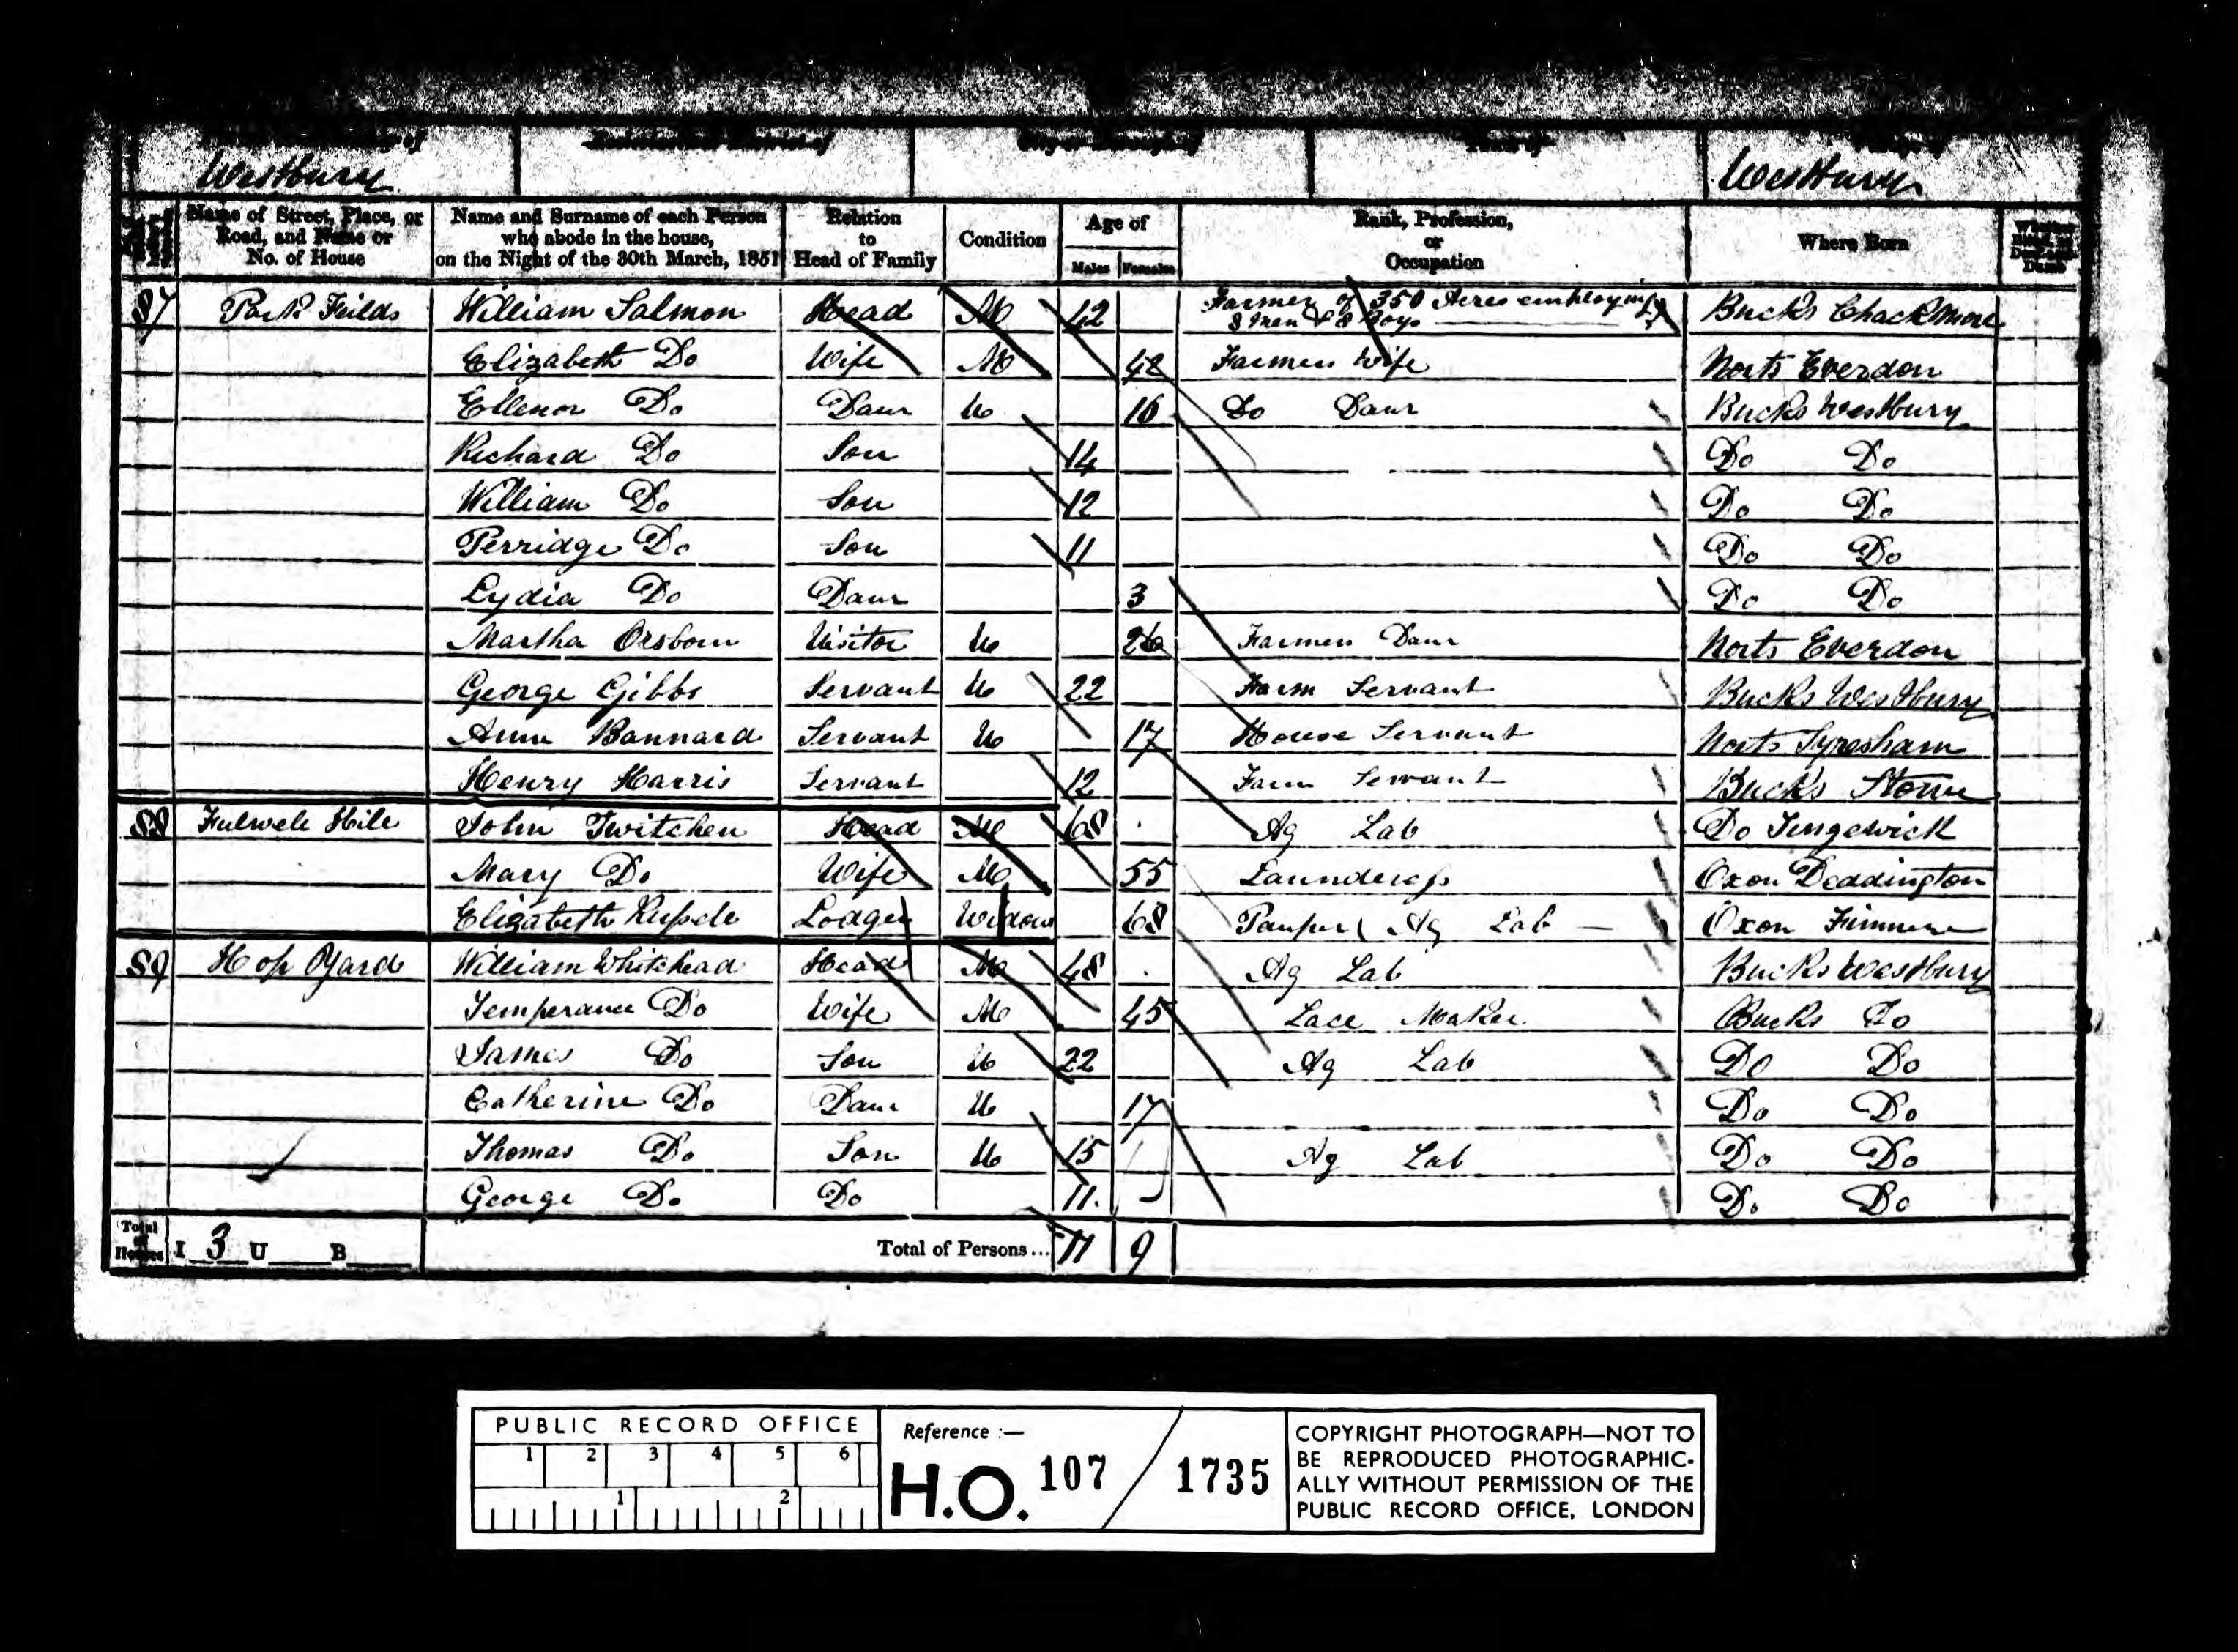 Westbury Westbury
Name of Street, Place, or Road, and Name or No. of House
Name and Surname of each Person who abode in the house, on the Night of the 30th March, 1851
Relation to Head of Family
Condition
Age of
Males Females
Rank, Profession, or Occupation
Where Born
87 Park Feilds William Salmon Head M 42 Farmer of 350 Acres employing 8 Men & 8 Boys Bucks Chackmore
Elizabeth Do Wife M 42 Farmers Wife Norts Everdon
Ellenor Do Daur U 16 Do Daur Bucks Westbury
Richard Do Son 14 Do Do
William Do Son 12 Do Do
Perridge Do Son 11 Do Do
Lydia Do Daur 3 Do Do
Martha Orsborn Visitor U 26 Farmers Daur Norts Everdon
George Gibbs Servant U 22 Farm Servant Bucks Westbury
Ann Bannard Servant U 17 House Servant Norts Syresham
Henry Harris Servant 12 Farm Servant Bucks Stowe
88 Fulwell Hill John Twitchen Head M 60 Ag Lab Do Tingewick
Mary Do Wife M 55 Laundress Oxon Deddington
Elizabeth Russell Lodger Widow 68 Pauper Ag Lab Oxon Finmere
89 Hop Yard William Whitehead Head M 48 Ag Lab Bucks Westbury
Temperance Do Wife M 45 Lace Maker Bucks Do
James Do Son U 22 Ag Lab Do Do
Catherine Do Daur U 17 Do Do
Thomas Do Son U 15 Ag Lab Do Do
George Do Do 11 Do Do
Total of Houses I 3 U B Total of Persons... 11 9
PUBLIC RECORD OFFICE
1 2 3 4 5 6
1 2
Reference :—
H.O. 107 / 1735
COPYRIGHT PHOTOGRAPH—NOT TO
BE REPRODUCED PHOTOGRAPHIC-
ALLY WITHOUT PERMISSION OF THE
PUBLIC RECORD OFFICE, LONDON